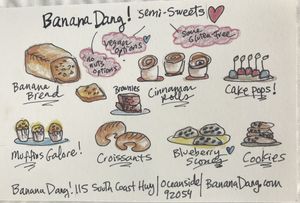 Banana Dang! Semi-Sweets
vegan options
no nuts options
Some Gluten Free
Banana Bread
Brownies
Cinnamon Rolls
Cake Pops!
Muffins Galore!
Croissants
Blueberry Scones
Cookies
Banana Dang! 115 South Coast Hwy/Oceanside/BananaDang.com
92054